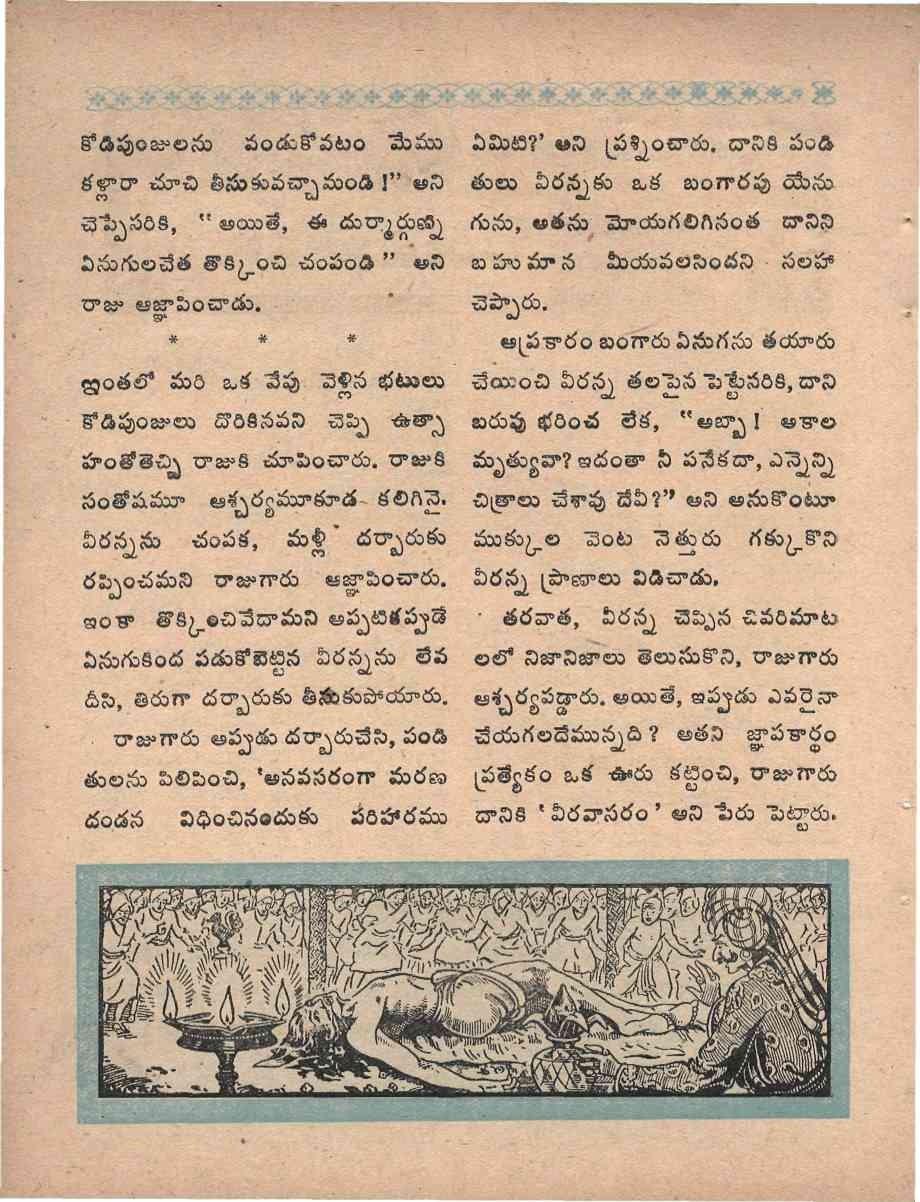 కోడిపుంజులను వండుకోవటం మేము
కళ్లారా చూచి తీసుకువచ్చామండి !” అని
చెప్పేసరికి, “ అయితే, ఈ దుర్మార్గుణ్ని
ఏనుగులచేత తొక్కించి చంపండి ” అని
రాజు ఆజ్ఞాపించాడు.
* * *
ఇంతలో మరి ఒక వేపు వెళ్లిన భటులు
కోడిపుంజులు దొరికినవని చెప్పి ఉత్సా
హంతోతెచ్చి రాజుకి చూపించారు. రాజుకి
సంతోషమూ ఆశ్చర్యమూకూడ కలిగినై.
వీరన్నను చంపక, మళ్లీ దర్బారుకు
రప్పించమని రాజుగారు ఆజ్ఞాపించారు.
ఇంకా తొక్కించివేదామని అప్పటికప్పుడే
ఏనుగుకింద పడుకోబెట్టిన వీరన్నను లేవ
దీసి, తిరుగా దర్బారుకు తీసుకుపోయారు.
రాజుగారు అప్పుడు దర్బారుచేసి, పండి
తులను పిలిపించి, ‘అనవసరంగా మరణ
దండన విధించినందుకు పరిహారము
ఏమిటి?’ అని ప్రశ్నించారు. దానికి పండి
తులు వీరన్నకు ఒక బంగారపు యేను
గును, అతను మోయగలిగినంత దానిని
బహుమాన మీయవలసిందని సలహా
చెప్పారు.
ఆప్రకారం బంగారు ఏనుగను తయారు
చేయించి వీరన్న తలపైన పెట్టేసరికి, దాని
బరువు భరించ లేక, “అబ్బా ! అకాల
మృత్యువా? ఇదంతా నీ పనేకదా, ఎన్నెన్ని
చిత్రాలు చేశావు దేవీ?” అని అనుకొంటూ
ముక్కుల వెంట నెత్తురు గక్కుకొని
వీరన్న ప్రాణాలు విడిచాడు.
తరవాత, వీరన్న చెప్పిన చివరిమాట
లలో నిజానిజాలు తెలుసుకొని, రాజుగారు
ఆశ్చర్యపడ్డారు. అయితే, ఇప్పుడు ఎవరైనా
చేయగలదేమున్నది? అతని జ్ఞాపకార్థం
ప్రత్యేకం ఒక ఊరు కట్టించి, రాజుగారు
దానికి ‘ వీరవాసరం ’ అని పేరు పెట్టారు.